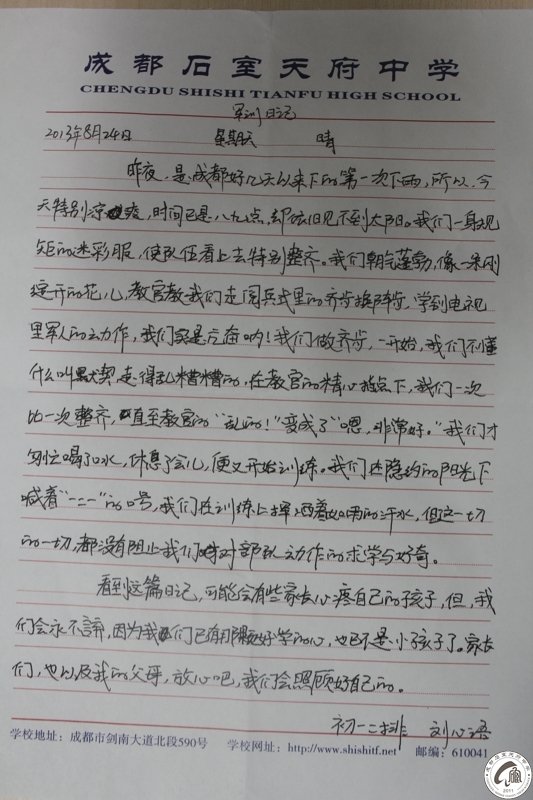 成都石室天府中学
CHENGDU SHISHI TIANFU HIGH SCHOOL
军训日记
2013年8月24日 星期天 晴
昨夜,是成都好几天以来下的第一次下雨,所以,今
天特别凉爽,时间已是八九点,却依旧见不到太阳。我们一身规
矩的迷彩服,使队伍看上去特别整齐。我们朝气蓬勃,像一朵刚
绽开的花儿,教官教我们走阅兵式里的齐步换阵行,学到电视
里军人的动作,我们实是亢奋哟!我们做齐步,一开始,我们不懂
什么叫默契,走得乱糟糟的,在教官的精心指点下,我们一次
比一次整齐,直至教官的“乱的!”变成了“嗯,非常好。”我们才
匆忙喝了口水,休息了会儿,便又开始训练。我们还隐约的阳光下
喊着“一二一”的口号,我们在训练上挥洒着如雨的汗水,但这一切
的一切,都没有阻止我们对部队动作的求学与好奇。
看到这篇日记,可能会有些家长心疼自己的孩子,但,我
们会永不辞,因为我们已有那颗好学的心,也已不是小孩子了。家长
们,也以及我的父母,放心吧,我们会照顾好自己的。
初一二排 刘心语
学校地址:成都市剑南大道北段590号 学校网址:http://www.shishitf.net 邮编:610041
2011